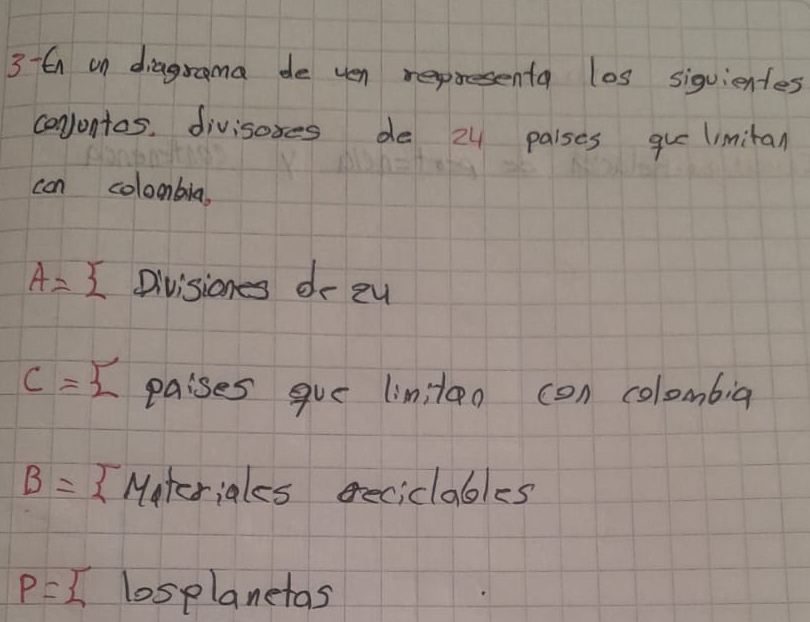 3-En un diagrama de ven representa los siguientes
conjuntos. divisores de 24 paises que limitan
con colombia.
A={ Divisiones de 24
C={ paises que limitan con colombia
B={ Materiales reciclables
P={ los planetas